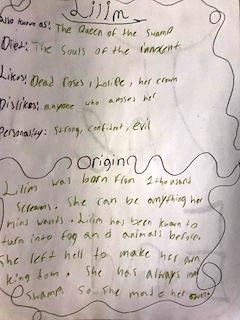 Lilim
Also known as: The Queen of the Swamp
Diet: The Souls of the innocent
Likes: Dead roses, , her crown
Dislikes: anyone who her
Personality: Strong, confident, evil
Origin
Lilim was born from 1 thousand
Screams. She can be anything her
mind wants. Lilim has been known to
turn into fog and animals before.
She left hell to make her own
kingdom. She has always
Swamp so she made her own.